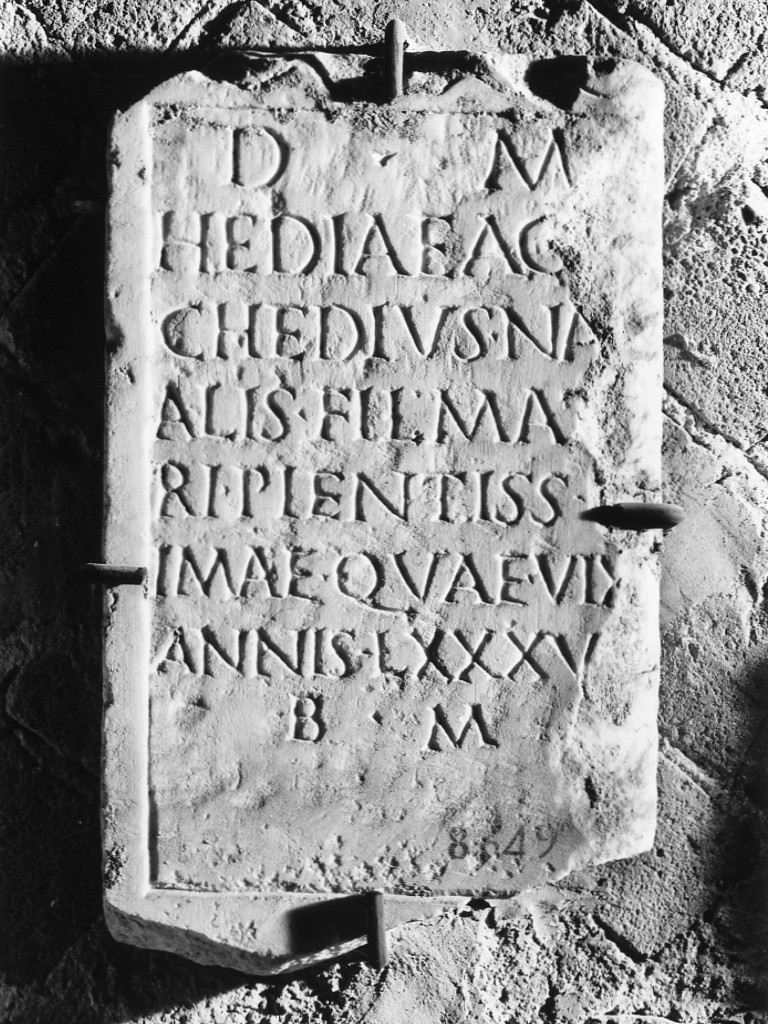 D · M
HEDIAE AC
C HEDIVS · NA
ALIS · FIL · MA
RI · PIENTISS
IMAE · QVAE · VIX
ANNIS · LXXXV
B · M
8649